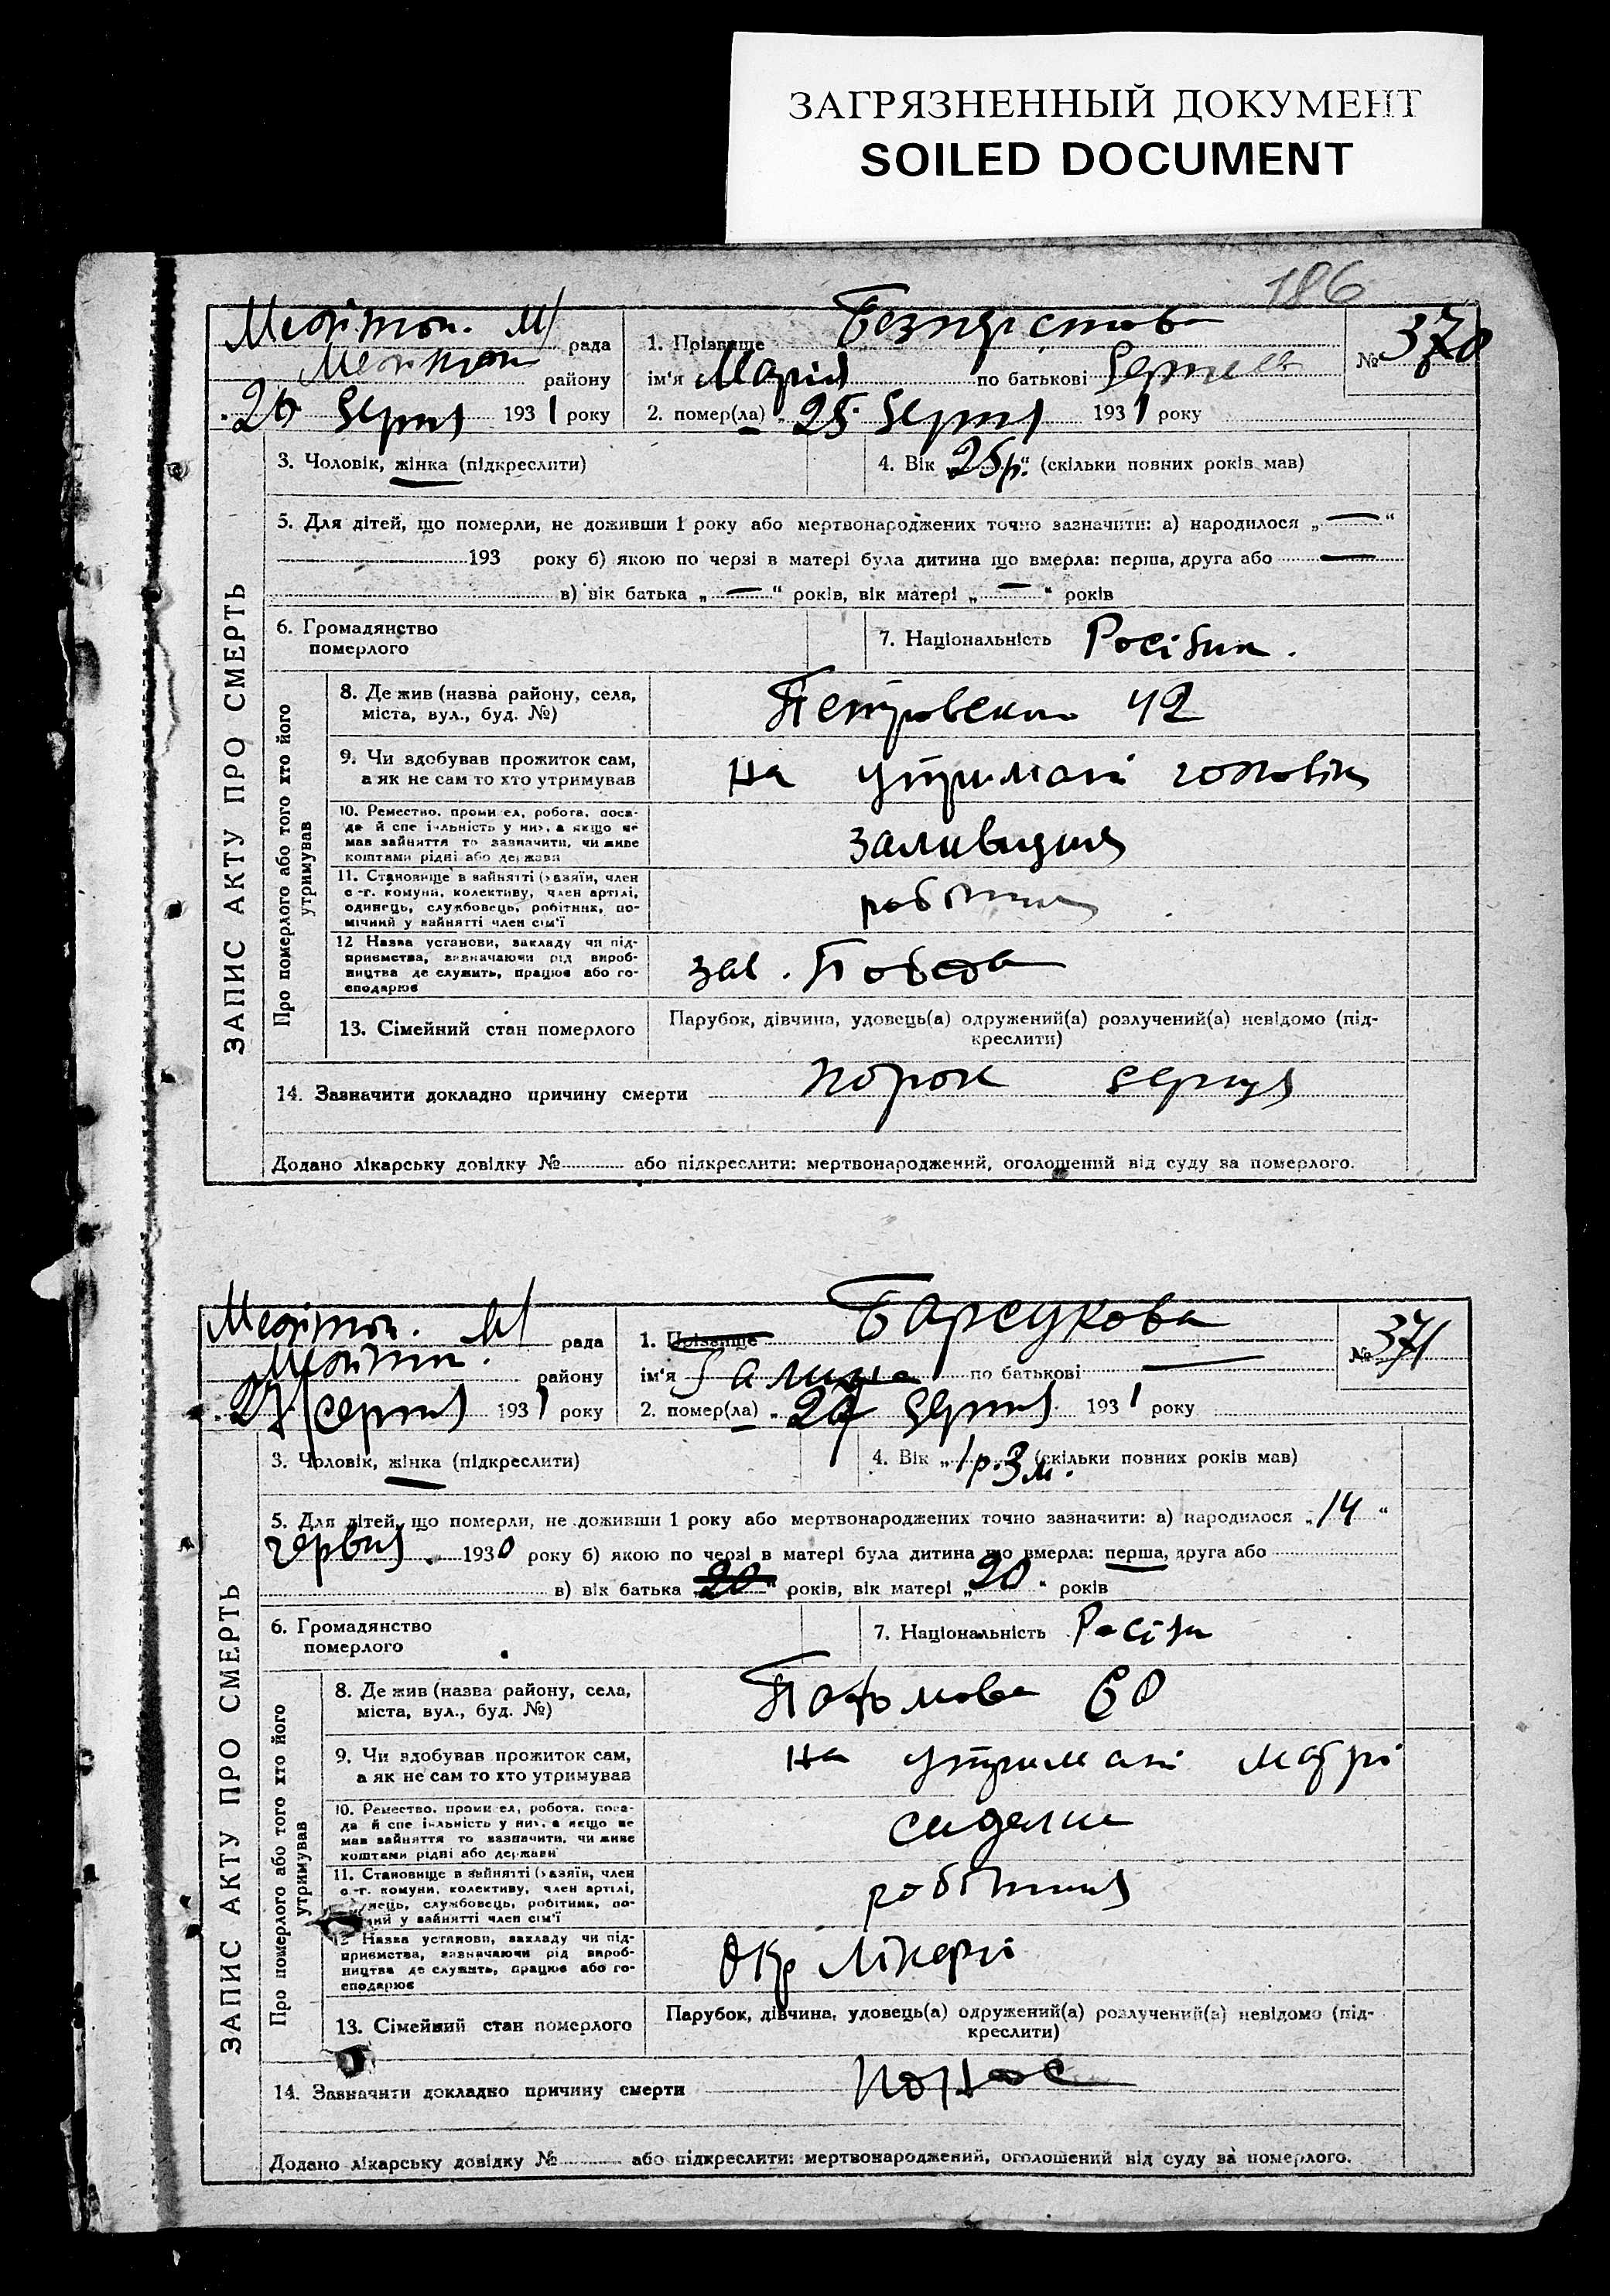 ЗАГРЯЗНЕННЫЙ ДОКУМЕНТ
SOILED DOCUMENT
186
ЗАПИС АКТУ ПРО СМЕРТЬ
рада
району
26 Серпня 1931 року
1. Прізвище
№ 370
ім'я Марія по батькові
2. помер(ла) „ 25 Серпня 1931 року
3. Чоловік, жінка (підкреслити)
4. Вік „ 25 р. “ (скільки повних років мав)
5. Для дітей, що померли, не доживши 1 року або мертвонароджених точно зазначити: а) народилося „ — “
193 року б) якою по черзі в матері була дитина що вмерла: перша, друга або —
в) вік батька „ — “ років, вік матері „ — “ років
6. Громадянство
померлого
7. Національність
Про померлого або того хто його
утримував
8. Де жив (назва району, села,
міста, вул., буд. №)
42
9. Чи здобував прожиток сам,
а як не сам то хто утримував
на утримані
10. Ремество, промисел, робота, поса-
да й спеціяльність у них, а якщо не
мав зайняття то зазначити, чи живе
коштами рідні або держави
11. Становище в зайнятті (хазяїн, член
с.-г. комуни, колективу, член артілі,
одинець, службовець, робітник, по-
мічний у зайнятті член сім'ї
12 Назва установи, закладу чи під-
приємства, зазначаючи рід вироб-
ництва де служить, працює або го-
сподарює
зав. Победа
13. Сімейний стан померлого
Парубок, дівчина, удовець(а) одружений(а) розлучений(а) невідомо (під-
креслити)
14. Зазначити докладно причину смерти порок серця
Додано лікарську довідку № або підкреслити: мертвонароджений, оголошений від суду за померлого.
ЗАПИС АКТУ ПРО СМЕРТЬ
рада
району
27 серпня 1931 року
1. Прізвище Барсукова
№ 371
ім'я Галина по батькові —
2. помер(ла) „ Серпня 1931 року
3. Чоловік, жінка (підкреслити)
4. Вік „ 1 р. 3 м. (скільки повних років мав)
5. Для дітей, що померли, не доживши 1 року або мертвонароджених точно зазначити: а) народилося „ 14 “
червня 1930 року б) якою по черзі в матері була дитина що вмерла: перша, друга або
в) вік батька „ 20 “ років, вік матері „ 20 “ років
6. Громадянство
померлого
7. Національність
Про померлого або того хто його
утримував
8. Де жив (назва району, села,
міста, вул., буд. №)
60
9. Чи здобував прожиток сам,
а як не сам то хто утримував
на утримані матрі
10. Ремество, промисел, робота, поса-
да й спеціяльність у них, а якщо не
мав зайняття то зазначити, чи живе
коштами рідні або держави
11. Становище в зайнятті (хазяїн, член
с.-г. комуни, колективу, член артілі,
одинець, службовець, робітник, по-
мічний у зайнятті член сім'ї
12 Назва установи, закладу чи під-
приємства, зазначаючи рід вироб-
ництва де служить, працює або го-
сподарює
13. Сімейний стан померлого
Парубок, дівчина, удовець(а) одружений(а) розлучений(а) невідомо (під-
креслити)
14. Зазначити докладно причину смерти понос
Додано лікарську довідку № або підкреслити: мертвонароджений, оголошений від суду за померлого.